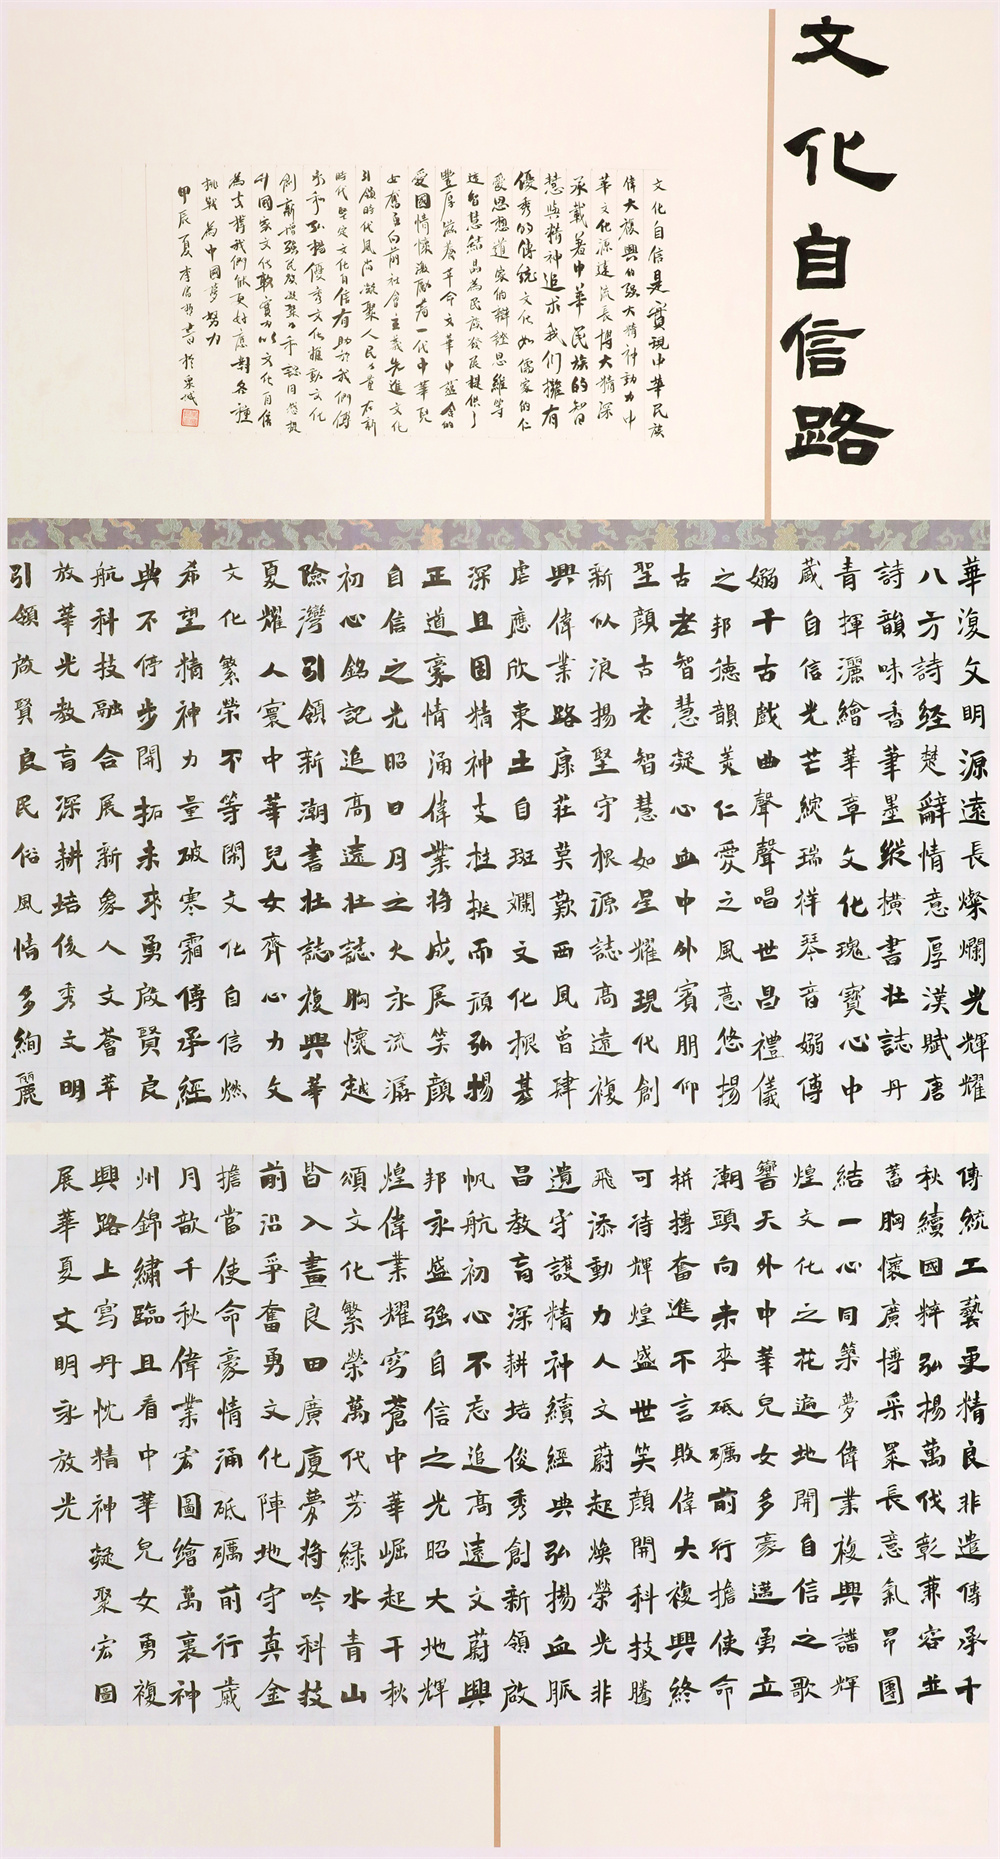 文化自信路
文化自信是實現中華民族
偉大復興的强大精神動力中
華文化源遠流長博大精深
承載着中華民族的智
慧與精神追求我们擁有
優秀的傳統文化如儒家的仁
愛思想道家的辯證思維等
這智慧結晶為民族發展提供了
豐厚滋養革命文化中蘊含的
愛國情懷激勵着一代中華兒
女奮勇向前社會主義先進文化
引領時代風尚凝聚人民力量在新
時代堅定文化自信有助於我們傳
承和弘揚優秀文化推動文化
創新增强民族凝聚力和認同感提
升國家文化軟實力以文化自信
為支撑我們能更好應對各種
挑戰為中國夢努力
甲辰夏李書於京城
華復文明源遠長燦爛光輝耀
八方詩経楚辭情意厚漢賦唐
詩韻味香筆墨縱横書壮誌丹
青揮灑繪華章文化瑰寶心中
蔵自信光芒綻瑞祥琴音嫋傳
嫋千古戲曲聲聲唱世昌禮儀
之邦德韻美仁愛之風意悠揚
古老智慧凝心血中外賓朋仰
聖顔古老智慧如星耀現代創
新似浪揚堅守根源誌高遠複
興偉業路康莊莫歎西風曾肆
虐應欣東土自斑斕文化根基
深且固精神支柱挺而頑弘揚
正道豪情涌偉業将成展笑顔
自信之光昭日月之火永流潺
初心銘記追高遠壮誌胸懷越
險灣引領新潮書壮誌複興華
夏耀人寰中華兒女齊心力文
文化繁榮不等閑文化自信燃
希望精神力量破寒霜傳承經
典不停步開拓未来勇啟賢良
航科技融合展新象人文薈萃
放華光教育深耕培後秀文明
引領啟賢良民俗風情多絢麗
傳統工藝更精良非遣傳承千
秋續國粹弘揚萬伐彰兼容並
蓄胸懷廣博采衆長意氣昂團
結一心同築夢偉業複興譜輝
煌文化之花遍地開自信之歌
響天外中華兒女多豪邁勇立
潮頭向未來砥礪前行擔使命
拼搏奮進不言敗偉大複興終
可待輝煌盛世笑顔開科技騰
飛添動力人文蔚起焕榮光非
遺守護精神續經典弘揚血脈
昌教育深耕培俊秀創新領啟
帆航初心不忘追高遠文蔚興
邦永盛强自信之光昭大地輝
煌偉業耀穹蒼中華崛起千秋
頌文化繁榮萬代芳緑水青山
皆入畫良田廣廈夢将吟科技
前沿爭奮勇文化陣地守真金
擔當使命豪情涌砥礪前行歲
月歌千秋偉業宏圖繪萬裏神
州錦繡臨且看中華兒女勇複
興路上寫丹忱精神凝聚宏圖
展華夏文明永放光